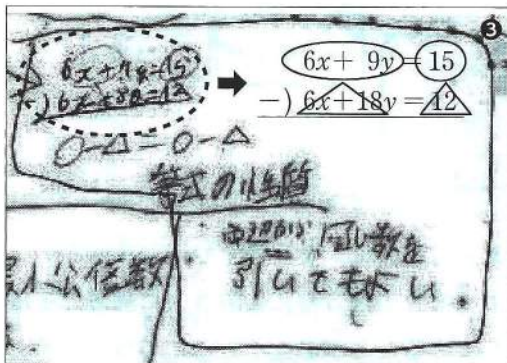 ❸
6x+9y=15
-) 6x+18y=12
6x+9y=15
-) 6x+18y=12
○-△=○-△
等式の性質
両辺から同じ数を
引いてもよい
最小公倍数